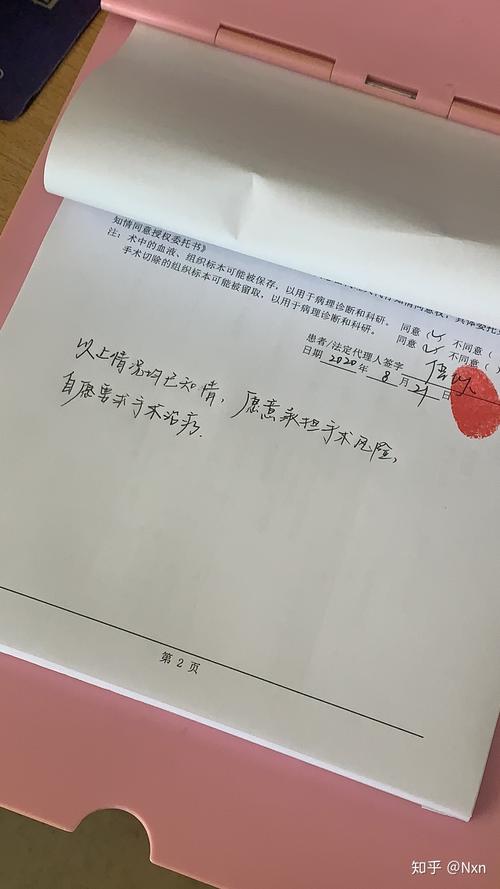 知情同意授权委托书》
注：术中的血液、组织标本可能被保存，以用于病理诊断和科研。 同意（✓ 不同意（
手术切除的组织标本可能被留取，以用于病理诊断和科研。 同意（✓ 不同意（ ）
患者/法定代理人签字
日期 2020 年 8 月 21 日
以上情况均已知情，愿意承担手术风险，
自愿要求手术治疗.
第 2 页
知乎 @Nxn